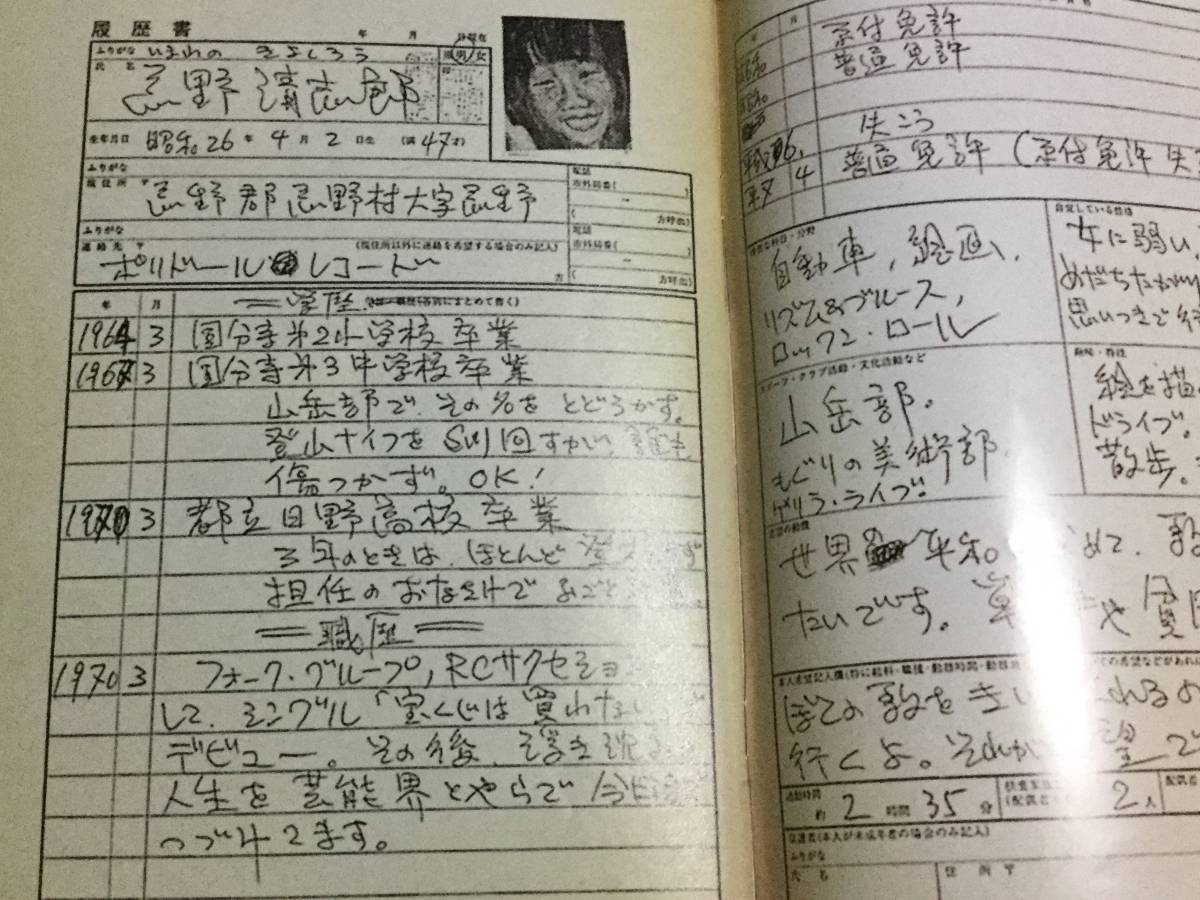 履歴書
年 月 日現在
ふりがな いまわの きよしろう
男・女
氏名 忌野 清志郎
生年月日 昭和26年4月2日生 (満47才)
ふりがな
現住所 〒
忌野郡忌野村大字忌野
電話
市外局番( )
( 方呼出)
ふりがな
連絡先 〒 (現住所以外に連絡を希望する場合のみ記入)
ポリドール レコード
方
電話
市外局番( )
( 方呼出)
年 月 =学歴
1964 3 国分寺第2小学校卒業
1967 3 国分寺第3中学校卒業
山岳部で、その名をとどろかす。
登山ナイフを
傷つかず。OK!
1970 3 都立日野高校卒業
3年のときは、ほとんど
担任のおなさけで
=職歴=
1970 3 フォーク・グループ,RCサクセショ
して、シングル「宝くじは買わない
デビュー。その後、浮き沈
人生を芸能界とやらで今日
つづけてます。
月
原付免許
普通免許
失こう
4 普通免許(原付免許 失
得意な科目・分野
自動車,絵画,
リズム&ブルース,
ロックン・ロール
自覚している性格
女に弱い,
めだちたがり
思いつきで行
スポーツ・クラブ活動・文化活動など
山岳部。
もぐりの美術部
ゲリラ・ライブ!
趣味・特技
絵を描
ドライブ。
散歩。
志望の動機
世界 平和 めて、歌
たいです。
本人希望記入欄(特に給料・職種・勤務時間・勤務地 ての希望などがあれば
ぼくの歌を れるよ
行くよ。それが
通勤時間
約 2 時間 35 分
2人
配偶者
保護者(本人が未成年者の場合のみ記入)
ふりがな
氏名
住所 〒